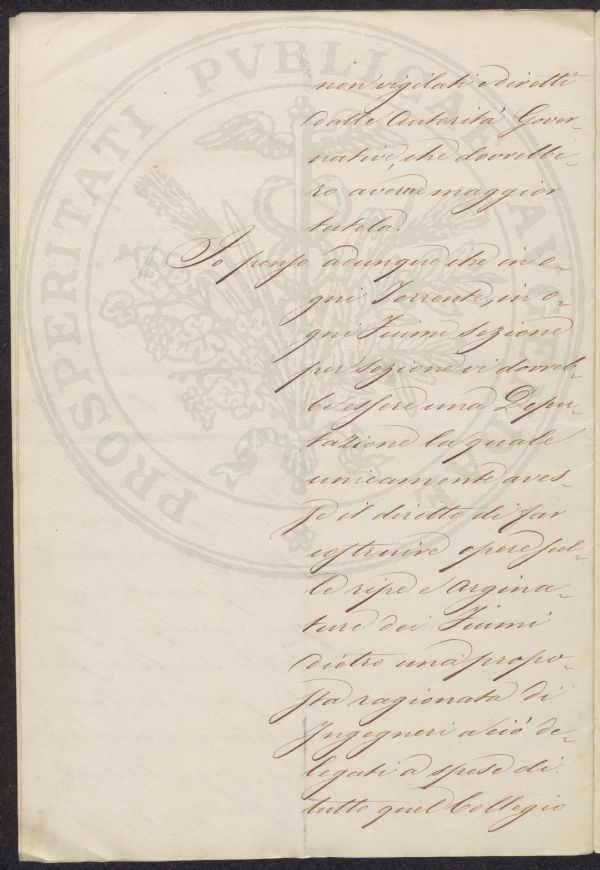 PROSPERITATI PVBLICAE AVGENDAE
non vigilati e diretti
dalle Autorità Gover-
native, che dovrebbe-
ro averne maggior
tutela.
Io penso adunque che in o-
gni Torrente, in o-
gni Fiume sezione
per Sezione vi dovreb-
be essere una Depu-
tazione la quale
unicamente aves-
se il diritto di far
costruire opere sul-
le ripe e Argina-
ture dei Fiumi
dietro una propo-
sta ragionata di
Ingegneri a ciò de-
legati a spese di
tutto quel Collegio